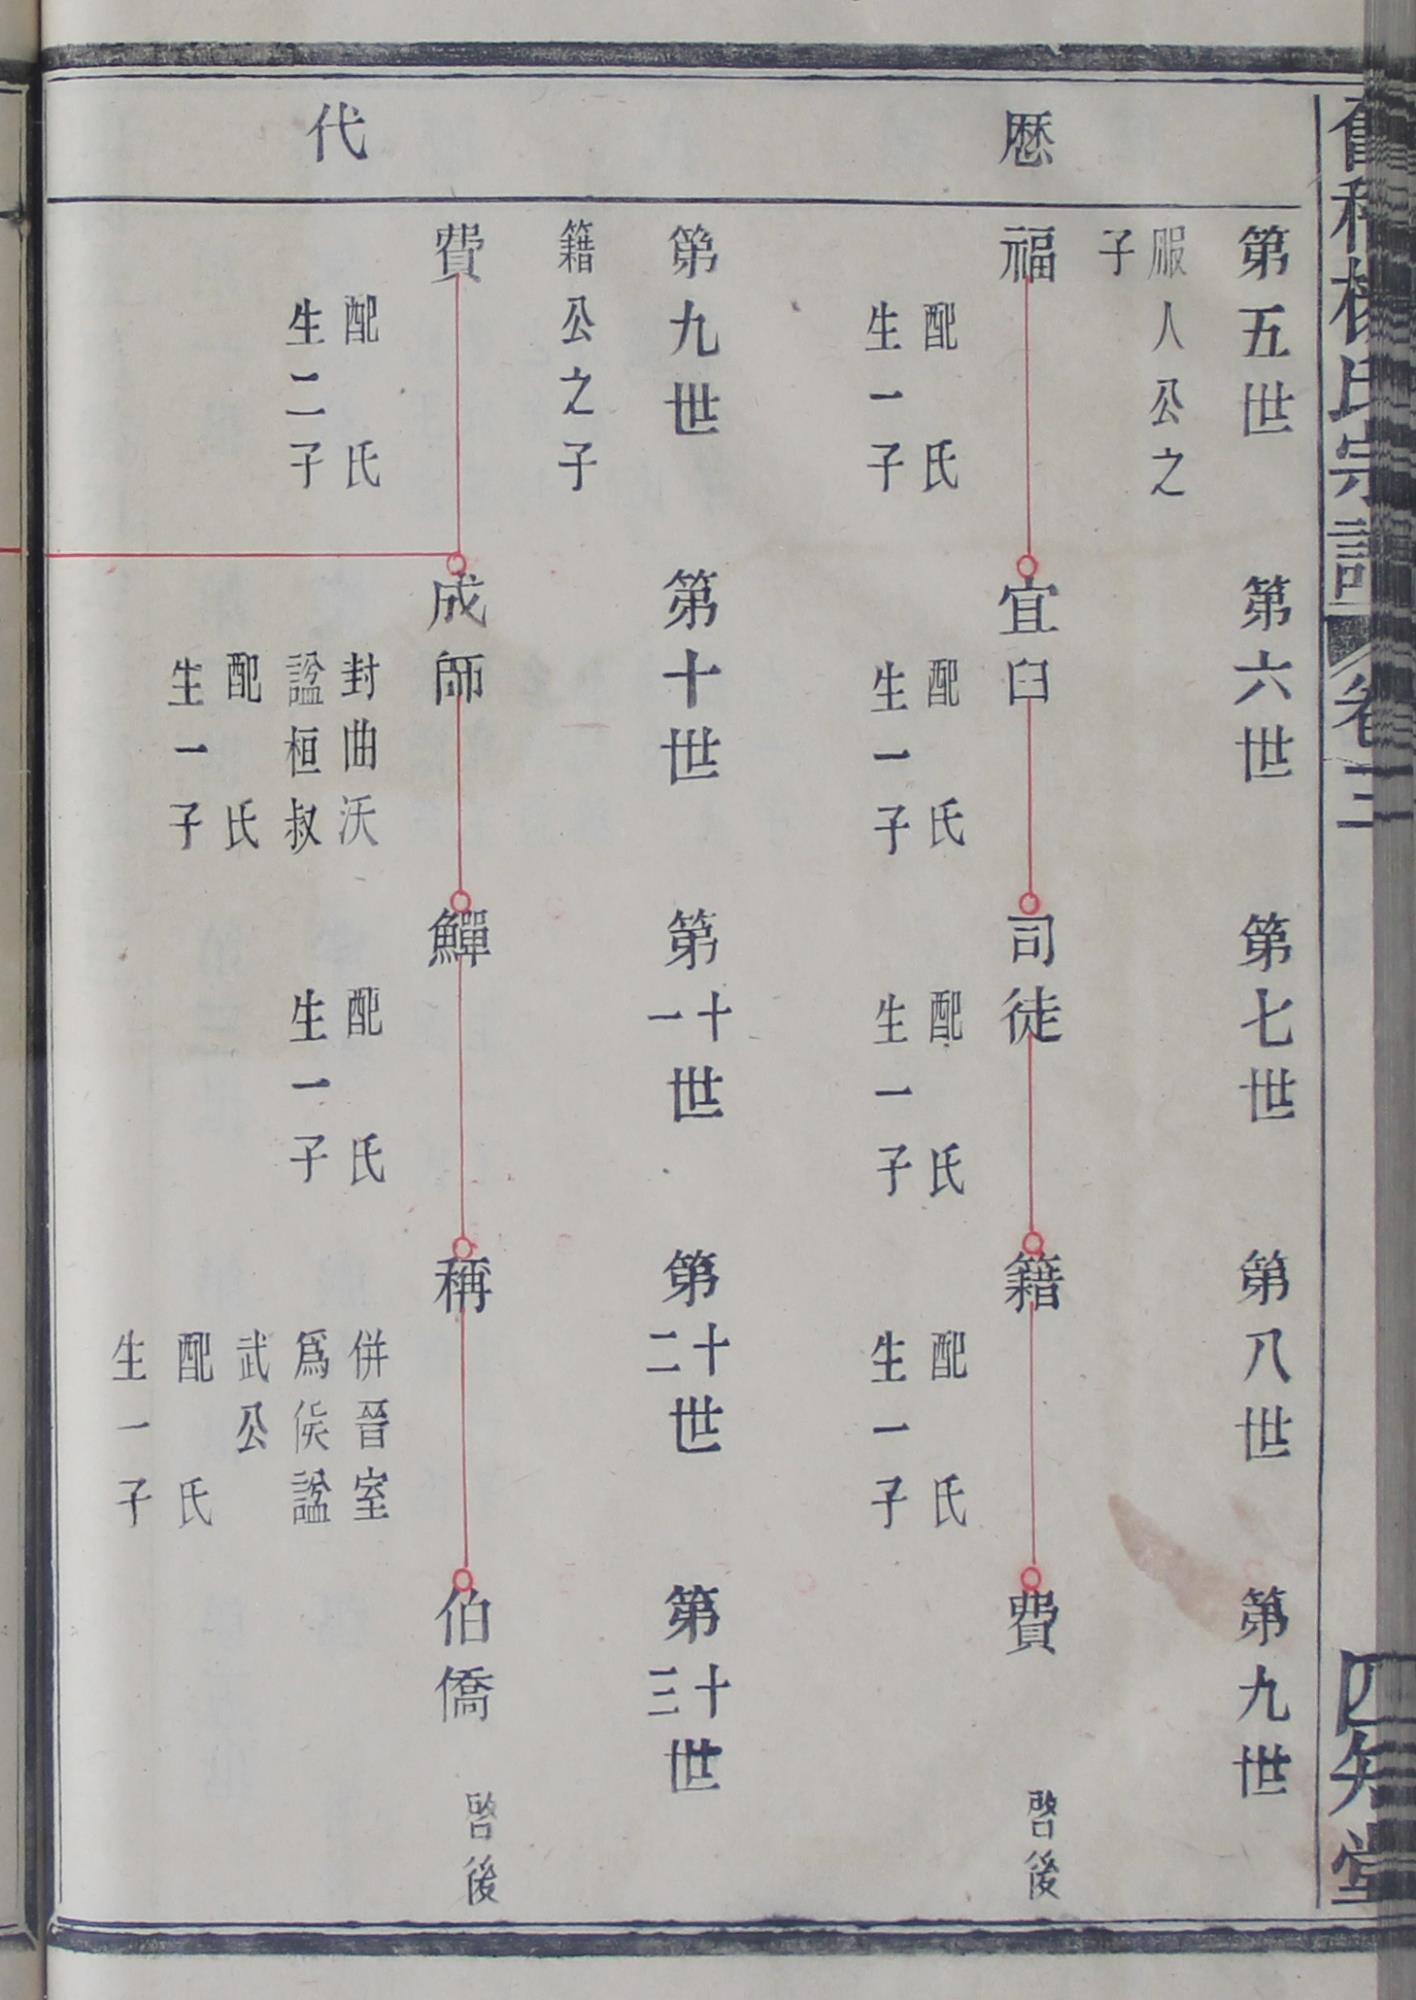 楊氏宗譜 卷三 四知堂
厯
第五世 第六世 第七世 第八世 第九世
服人公之
子
福 宜臼 司徒 籍 費 啓後
配氏 配氏 配氏 配氏
生一子 生一子 生一子 生一子
代
第九世 第十世 第十一世 第十二世 第十三世
籍公之子
費 成師 鱓 稱 伯僑 啓後
配氏 封曲沃 配氏 併晉室
生二子 諡桓叔 生一子 爲侯諡
配氏 武公
生一子 配氏
生一子